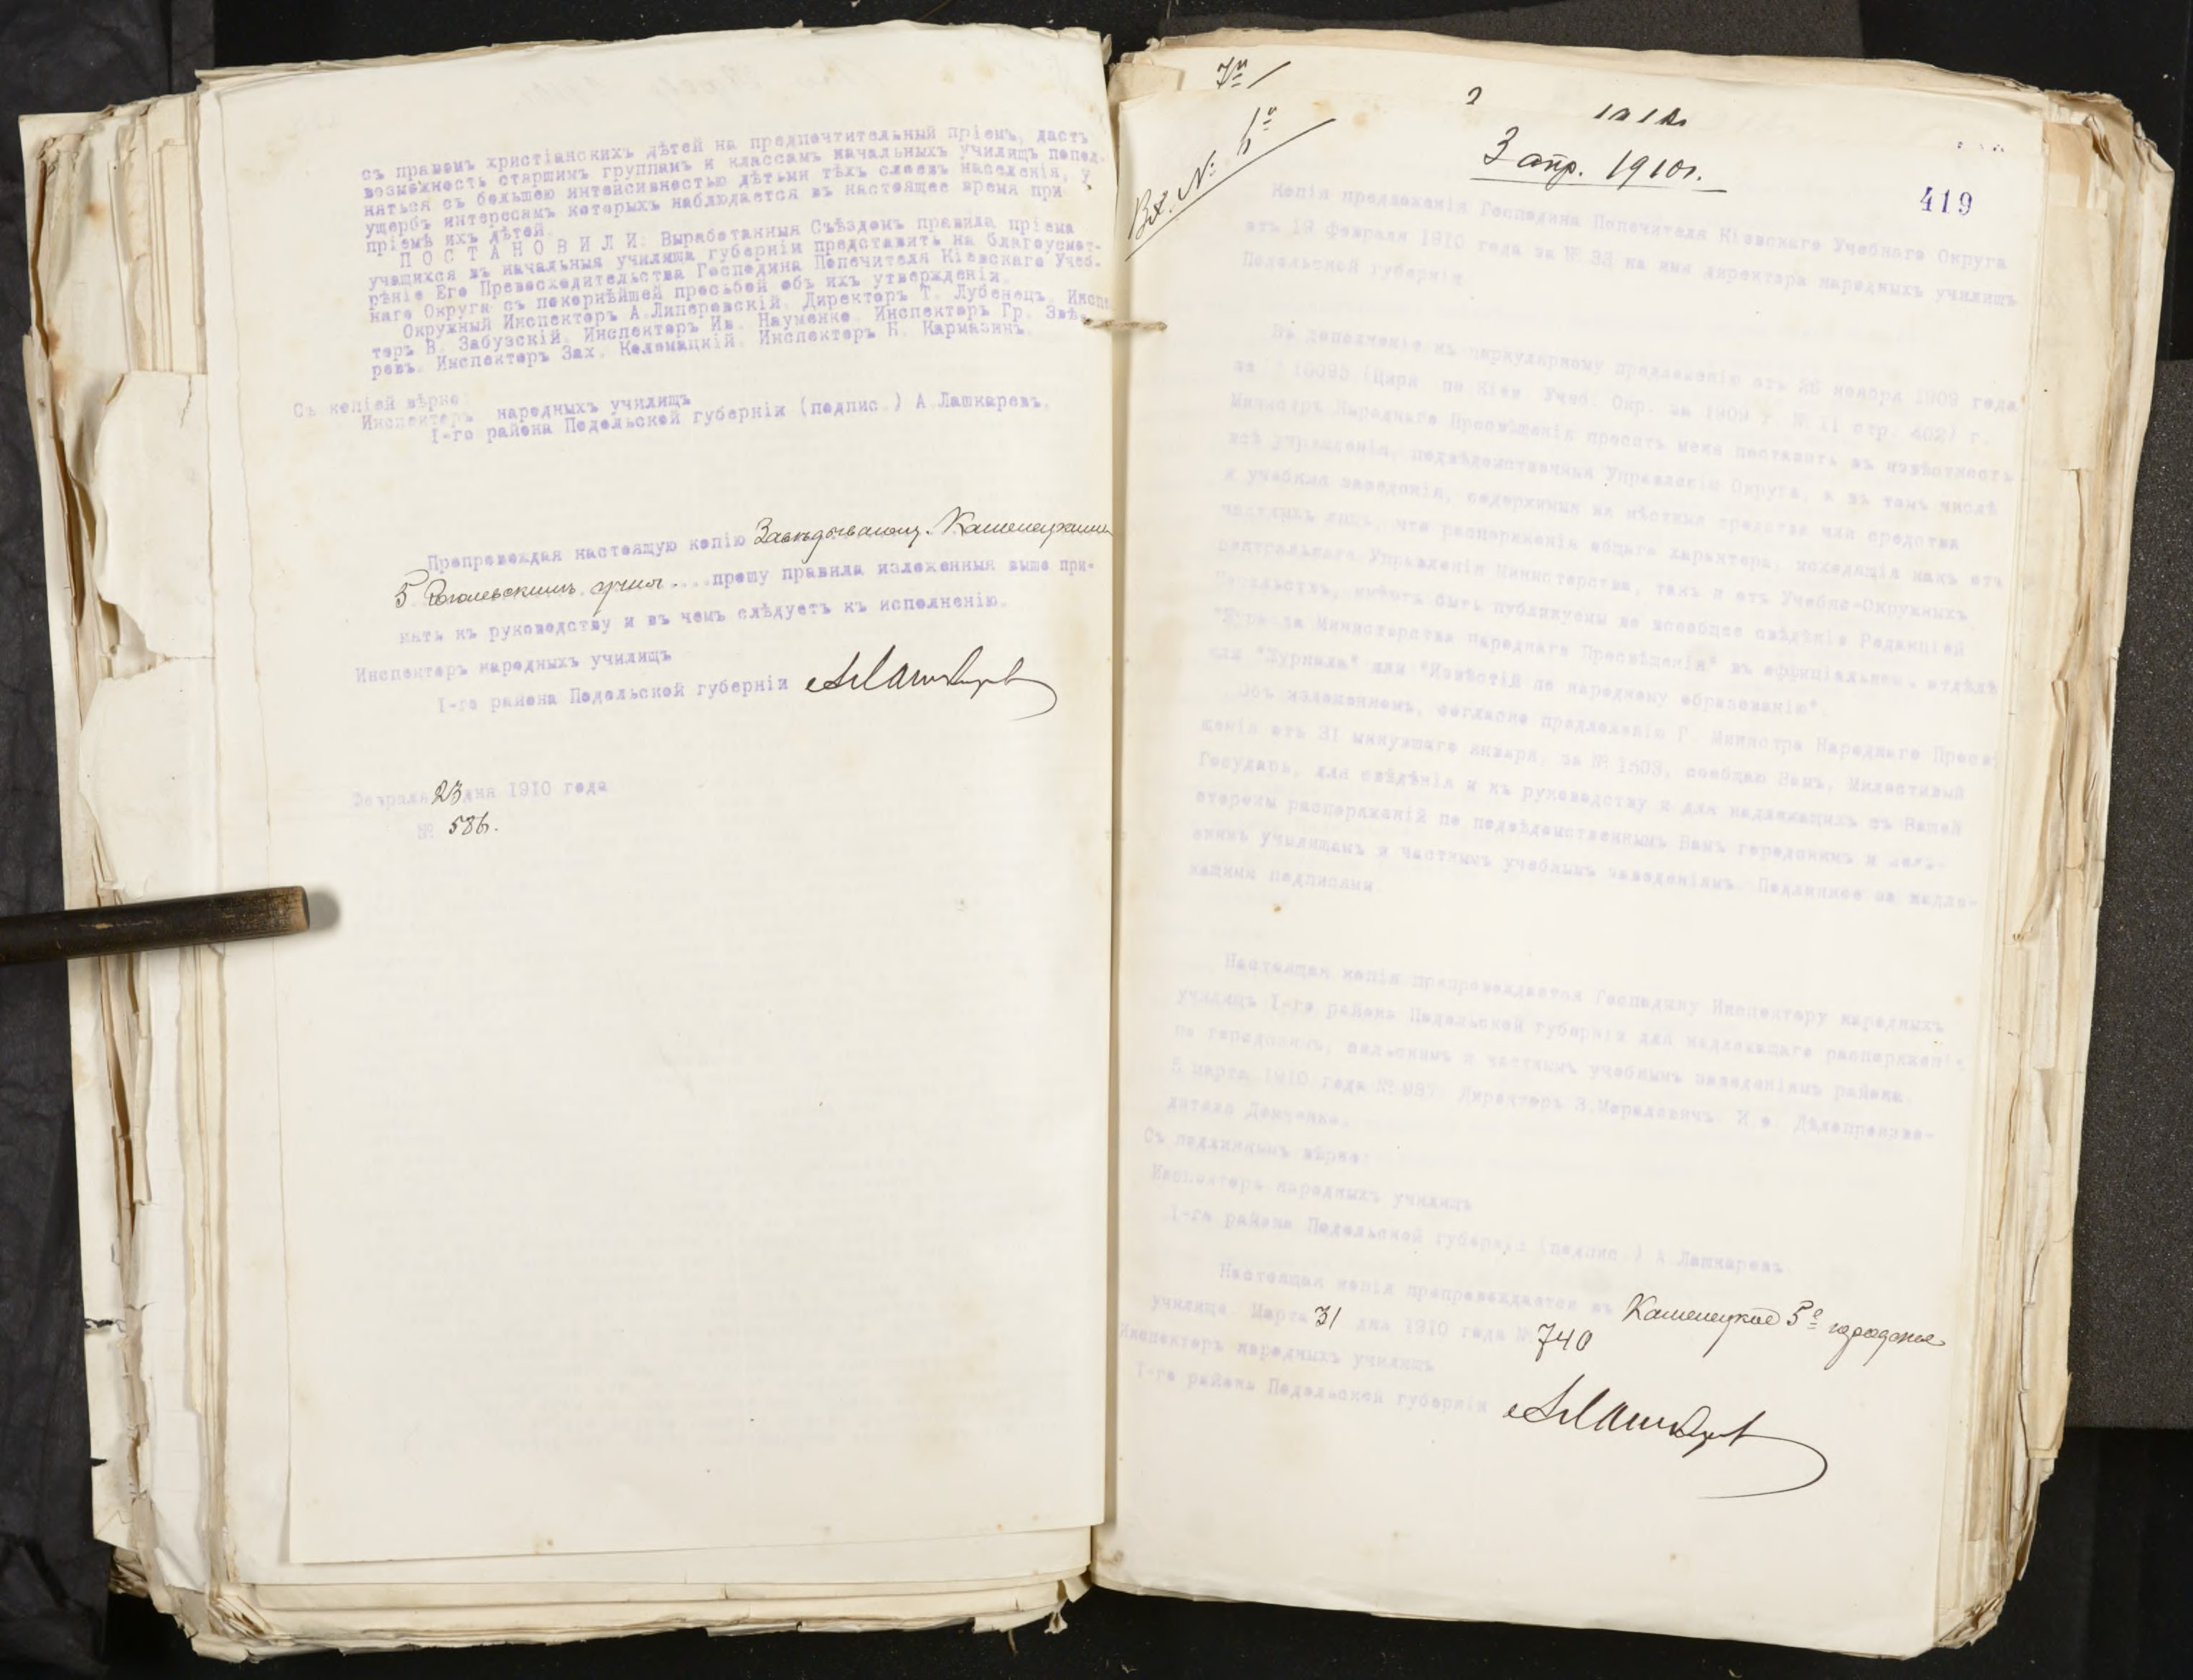 съ правомъ христіанскихъ дѣтей на предпочтительный пріемъ, дастъ
возможность старшимъ группамъ и классамъ начальныхъ училищъ попол-
няться съ большею интенсивностью дѣтьми тѣхъ слоевъ населенія, у
ущербъ интересамъ которыхъ наблюдается въ настоящее время при
пріемѣ ихъ дѣтей.
П О С Т А Н О В И Л И: Выработанныя Съѣздомъ правила пріема
учащихся въ начальныя училища губерніи представить на благоусмот-
рѣніе Его Превосходительства Господина Попечителя Кіевскаго Учеб-
наго Округа съ покорнѣйшей просьбой объ ихъ утвержденіи.
Окружный Инспекторъ А.Липеровскій. Директоръ Т. Лубенецъ. Инспе
торъ В. Забузскій. Инспекторъ Ив. Науменко. Инспекторъ Гр. Звѣ-
ревъ. Инспекторъ Зах. Коломацкій. Инспекторъ Н. Кармазинъ.
Съ копіей вѣрно:
Инспекторъ народныхъ училищъ
I-го района Подольской губерніи (подпис.) А.Лашкаревъ.
Препровождая настоящую копію Завѣдывающ. Каменецкимъ
5 Гоголевскимъ учил. прошу правила изложенныя выше при-
нять къ руководству и въ чемъ слѣдуетъ къ исполненію.
Инспекторъ народныхъ училищъ
I-го района Подольской губерніи АЛашкаревъ
Февраля 23 дня 1910 года
№ 586.
Вх. №
3 апр. 1910г.
419
Копія предложенія Господина Попечителя Кіевскаго Учебнаго Округа
отъ 19 февраля 1910 года за № 33 на имя директора народныхъ училищъ
Подольской губерніи
Въ дополненіе къ циркулярному предложенію отъ 26 ноября 1909 года
за 16095 (Цирк. по Кіев. Учеб. Окр. за 1909 г. № 11 стр. 402) г.
Министръ Народнаго Просвѣщенія проситъ меня поставить въ извѣстность
всѣ учрежденія, подвѣдомственныя Управленію Округа, а въ томъ числѣ
и учебныя заведенія, содержимыя на мѣстныя средства или средства
частныхъ лицъ, что распоряженія общаго характера, исходящія какъ отъ
центральнаго Управленія Министерства, такъ и отъ Учебно-Окружныхъ
имѣютъ быть публикуемы во всеобщее свѣдѣніе Редакціей
"Журнала Министерства Народнаго Просвѣщенія" въ оффиціальномъ отдѣлѣ
или "Журнала" или "Извѣстій по народному образованію".
Объ изложенномъ, согласно предложенію Г. Министра Народнаго Просвѣ
щенія отъ 31 минувшаго января, за № 1503, сообщаю Вамъ, Милостивый
Государь, для свѣдѣнія и къ руководству и для надлежащихъ съ Вашей
стороны распоряженій по подвѣдомственнымъ Вамъ городскимъ и сель-
скимъ училищамъ и частнымъ учебнымъ заведеніямъ. Подлинное за надле-
жащими подписями.
Настоящая копія препровождается Господину Инспектору народныхъ
училищъ I-го района Подольской губерніи для надлежащаго распоряжені-
по городскимъ, сельскимъ и частнымъ учебнымъ заведеніямъ района
5 марта 1910 года № 987. Директоръ И о. Дѣлопроизво-
дителя Демченко.
Съ подлиннымъ вѣрно:
Инспекторъ народныхъ училищъ
I-го района Подольской губерніи (подпис.) А Лашкаревъ
Настоящая копія препровождается въ Каменецкое 5е городское
училище Марта 31 дня 1910 года № 740
Инспекторъ народныхъ училищъ
I-го района Подольской губерніи АЛашкаревъ